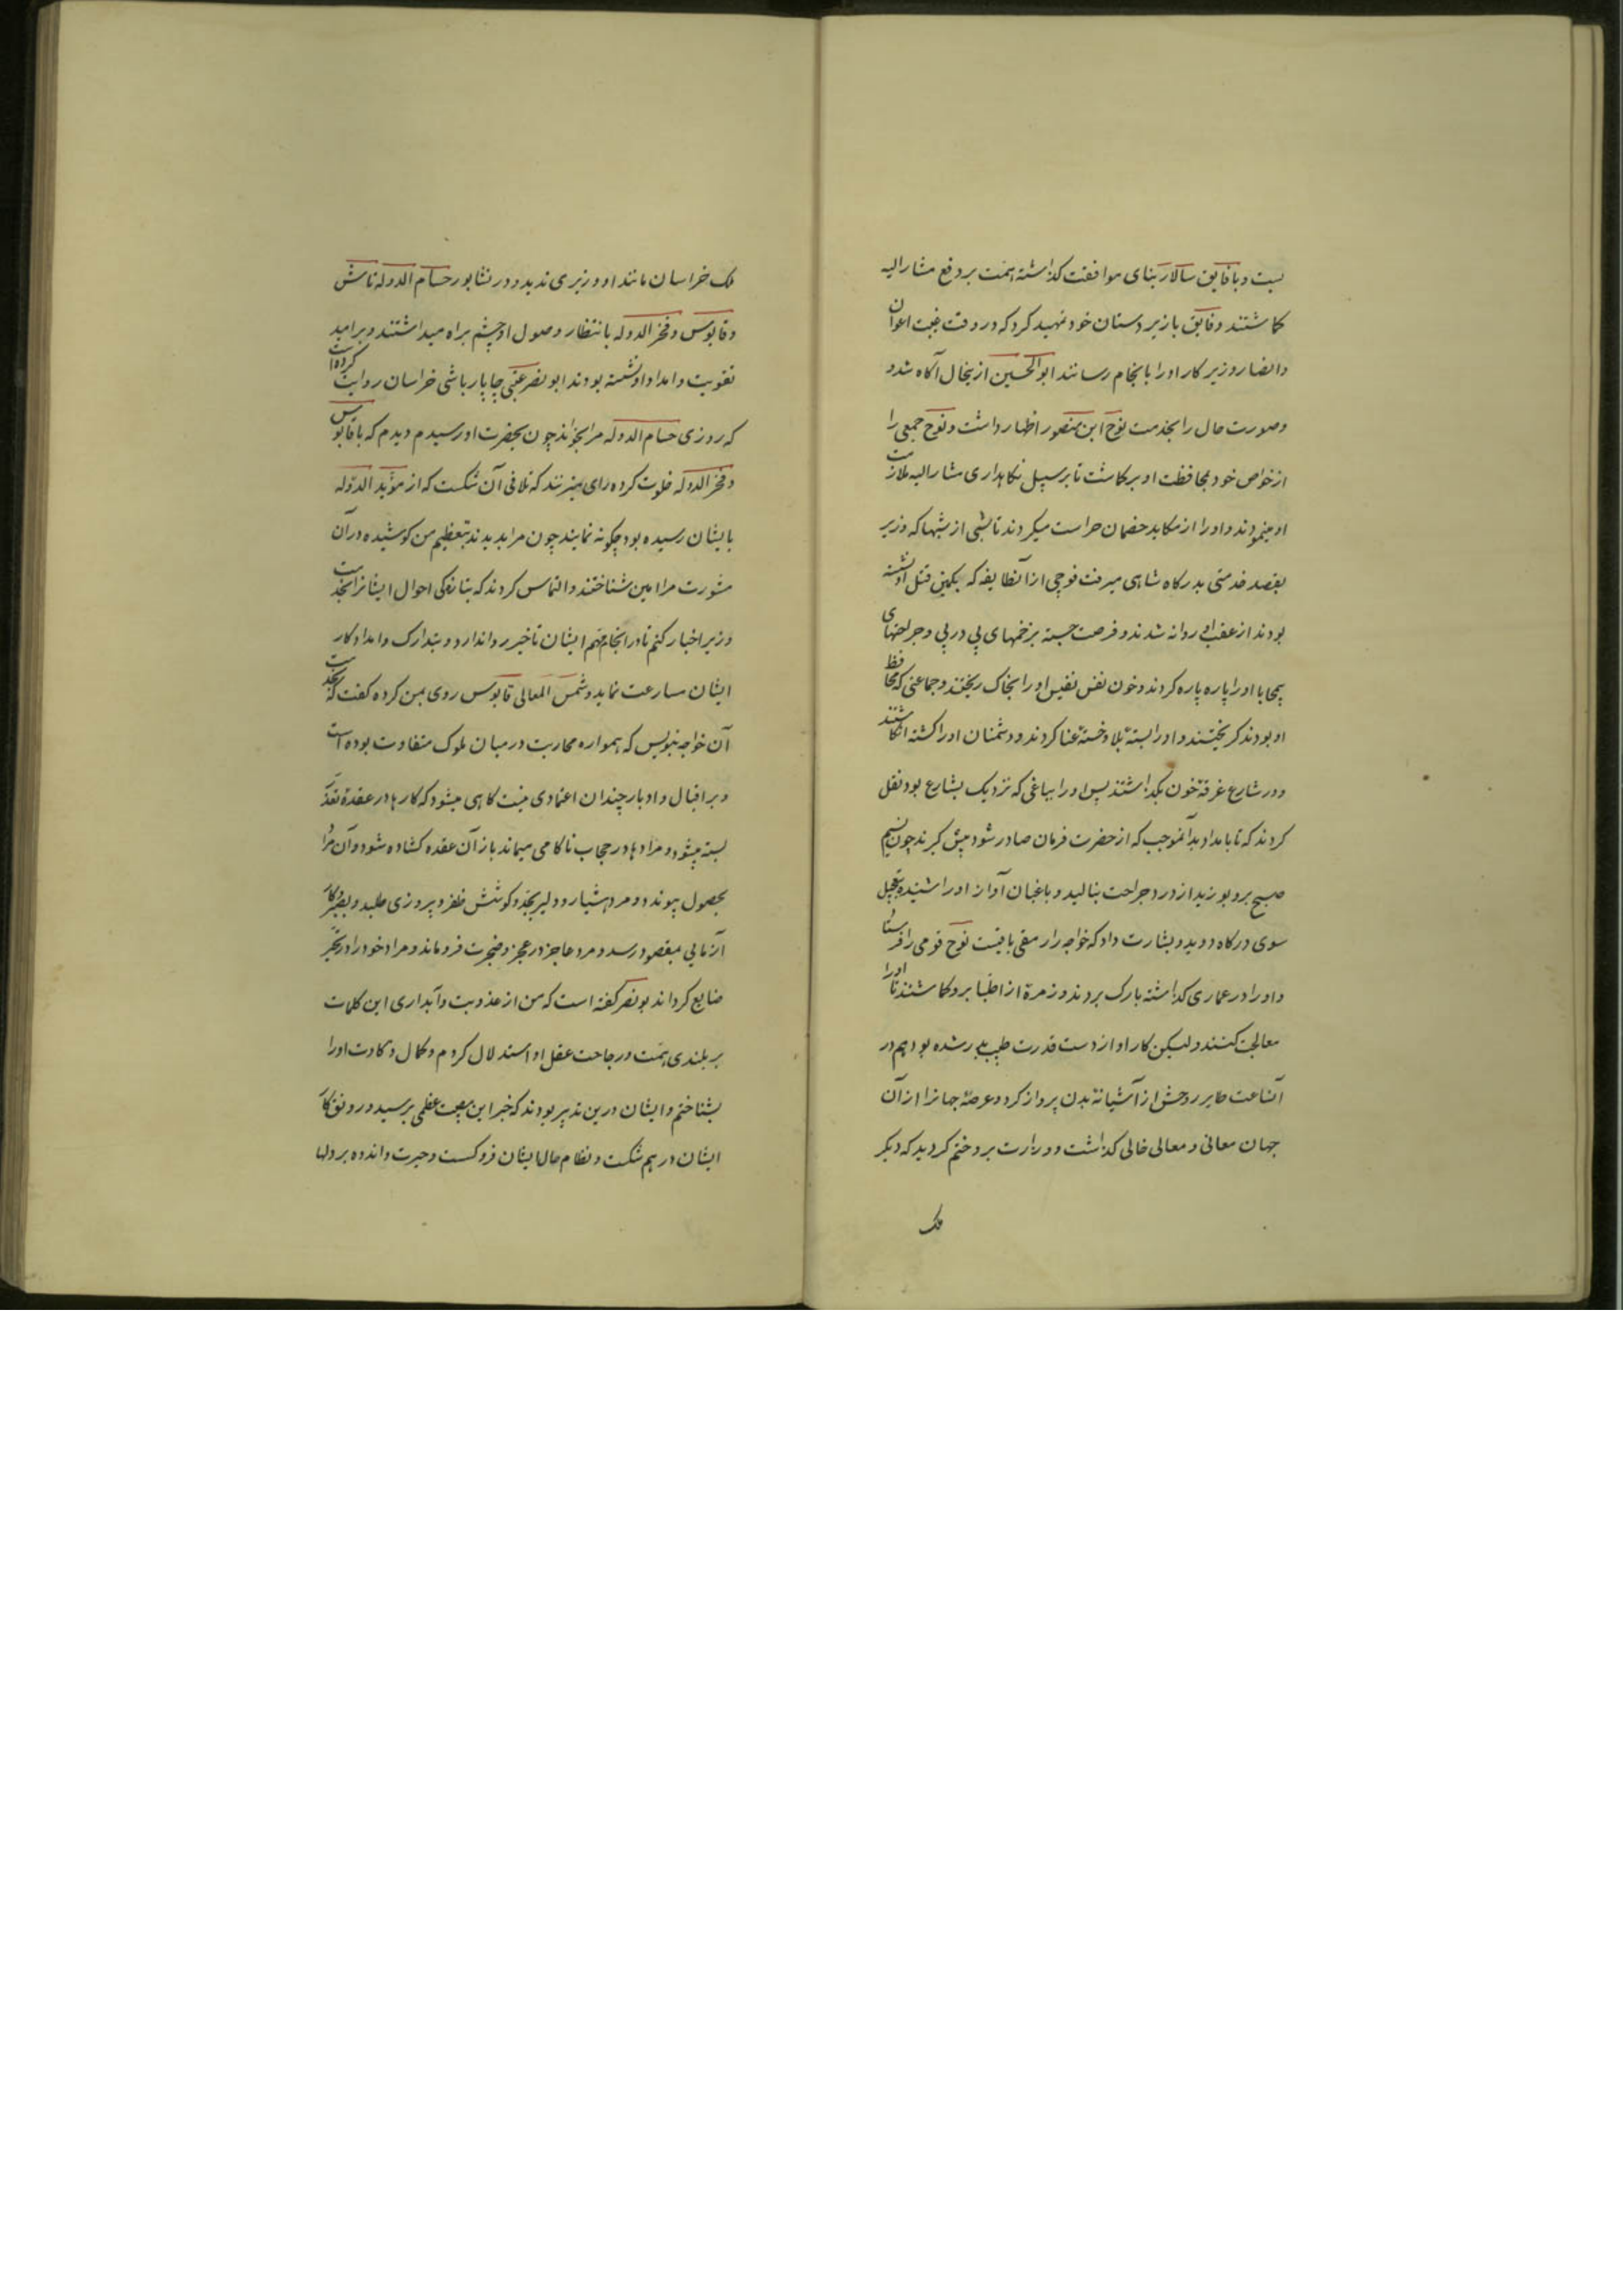 بست و با فایق سالار بنای موافقت گذاشته همت بر دفع مشار الیه
کماشتند و فایق با زیر دستان خود تمهید کرد که در وقت غیبت اعوان
و انصار وزیر کار او را بانجام رسانند ابو الحسین ازینحال آکاه شد و
و صورت حال را بخدمت نوح ابن منصور اظهار داشت و نوح جمعی را
از خواص خود بمحافظت او برکماشت تا بر سبیل نکاهداری مشار الیه ملازمت
او مینمودند و او را از مکاید خصمان حراست میکردند تا شبی از شبها که وزیر
بقصد خدمتی بدرکاه شاهی میرفت فوجی از آنطایفه که بکمین قتل او نشسته
بودند از عقب او روانه شدند و فرصت جسته بزخمهای پی در پی و جراحتهای
بیمحابا او را پاره پاره کردند و خون نفس نفیس او را بخاک ریختند و جماعتی که محافظ
او بودند کریختند و او را بسته بلا و خسته عنا کردند و دشمنان او را کشته انکاشتند
و در شارع غرقه خون بکذاشتند پس او را بباغی که نزدیک بشارع بود نقل
کردند که تا بامداد بدآنموجب که از حضرت فرمان صادر شود پیش کیرند چون نسیم
صبح برو بوزید از درد جراحت بنالید و باغبان آواز او را شنیده بتعجیل
سوی درکاه دوید و بشارت داد که خواجه را رمقی باقیست نوح قومی را فرستاد
و او را در عماری کذاشته بارک بردند و زمرهٔ از اطبا برو کماشتند تا او را
معالجت کنند ولیکن کار او از دست قدرت طبیب بدر شده بود هم در
آنساعت طایر روحش از آشیانهٔ بدن پرواز کرد و عرصهٔ جهانرا از آن
جهان معانی و معالی خالی کذاشت و وزارت برو ختم کردید که دیکر
ملک
ملک خراسان مانند او وزیری ندید و در نشابور حسام الدوله تاش
و قابوس و فخر الدوله بانتظار وصول او چشم براه میداشتند و بر امید
تقویت و امداد او نشسته بودند ابو نصر عتبی چاپار باشی خراسان روایت کرده است
که روزی حسام الدوله مرا بخواند چون بحضرت او رسیدم دیدم که با قابوس
و فخر الدوله خلوت کرده رای میزنند که تلافی آن شکست که از موید الدوله
بایشان رسیده بود چکونه نمایند چون مرا بدیدند بتعظیم من کوشیده در آن
مشورت مرا امین شناختند و التماس کردند که بتازکی احوال ایشانرا بخدمت
وزیر اخبار کنم تا در انجام مهم ایشان تاخیر روا ندارد و بتدارک و امداد کار
ایشان مسارعت نماید و شمس المعالی قابوس روی بمن کرده کفت که بخدمت
آن خواجه بنویس که همواره محاربت در میان ملوک متفاوت بوده است
و بر اقبال و ادبار چندان اعتمادی نیست کاهی میشود که کارها در عقدهٔ تعذر
بسته میشود و مرادها در حجاب ناکامی میماند باز آن عقده کشاده شود و آن مراد
بحصول پیوندد و مرد هشیار و دلیر بجد و کوشش ظفر و پیروزی طلبد و بصبر و کار
آزمایی بمقصود رسد و مرد عاجز در عجز و ضجرت فرو ماند و مراد خود را در تحیر
ضایع کرداند بو نصر کفته است که من از عذوبت و آبداری این کلمات
بر بلندی همت و رجاحت عقل او استدلال کردم و کمال ذکاوت او را
بشناختم و ایشان درین تدبیر بودند که خبر این مصیبت عظمی برسید و رونق کار
ایشان در هم شکست و نظام حال ایشان فرو کسست و حیرت و اندوه بر دلها